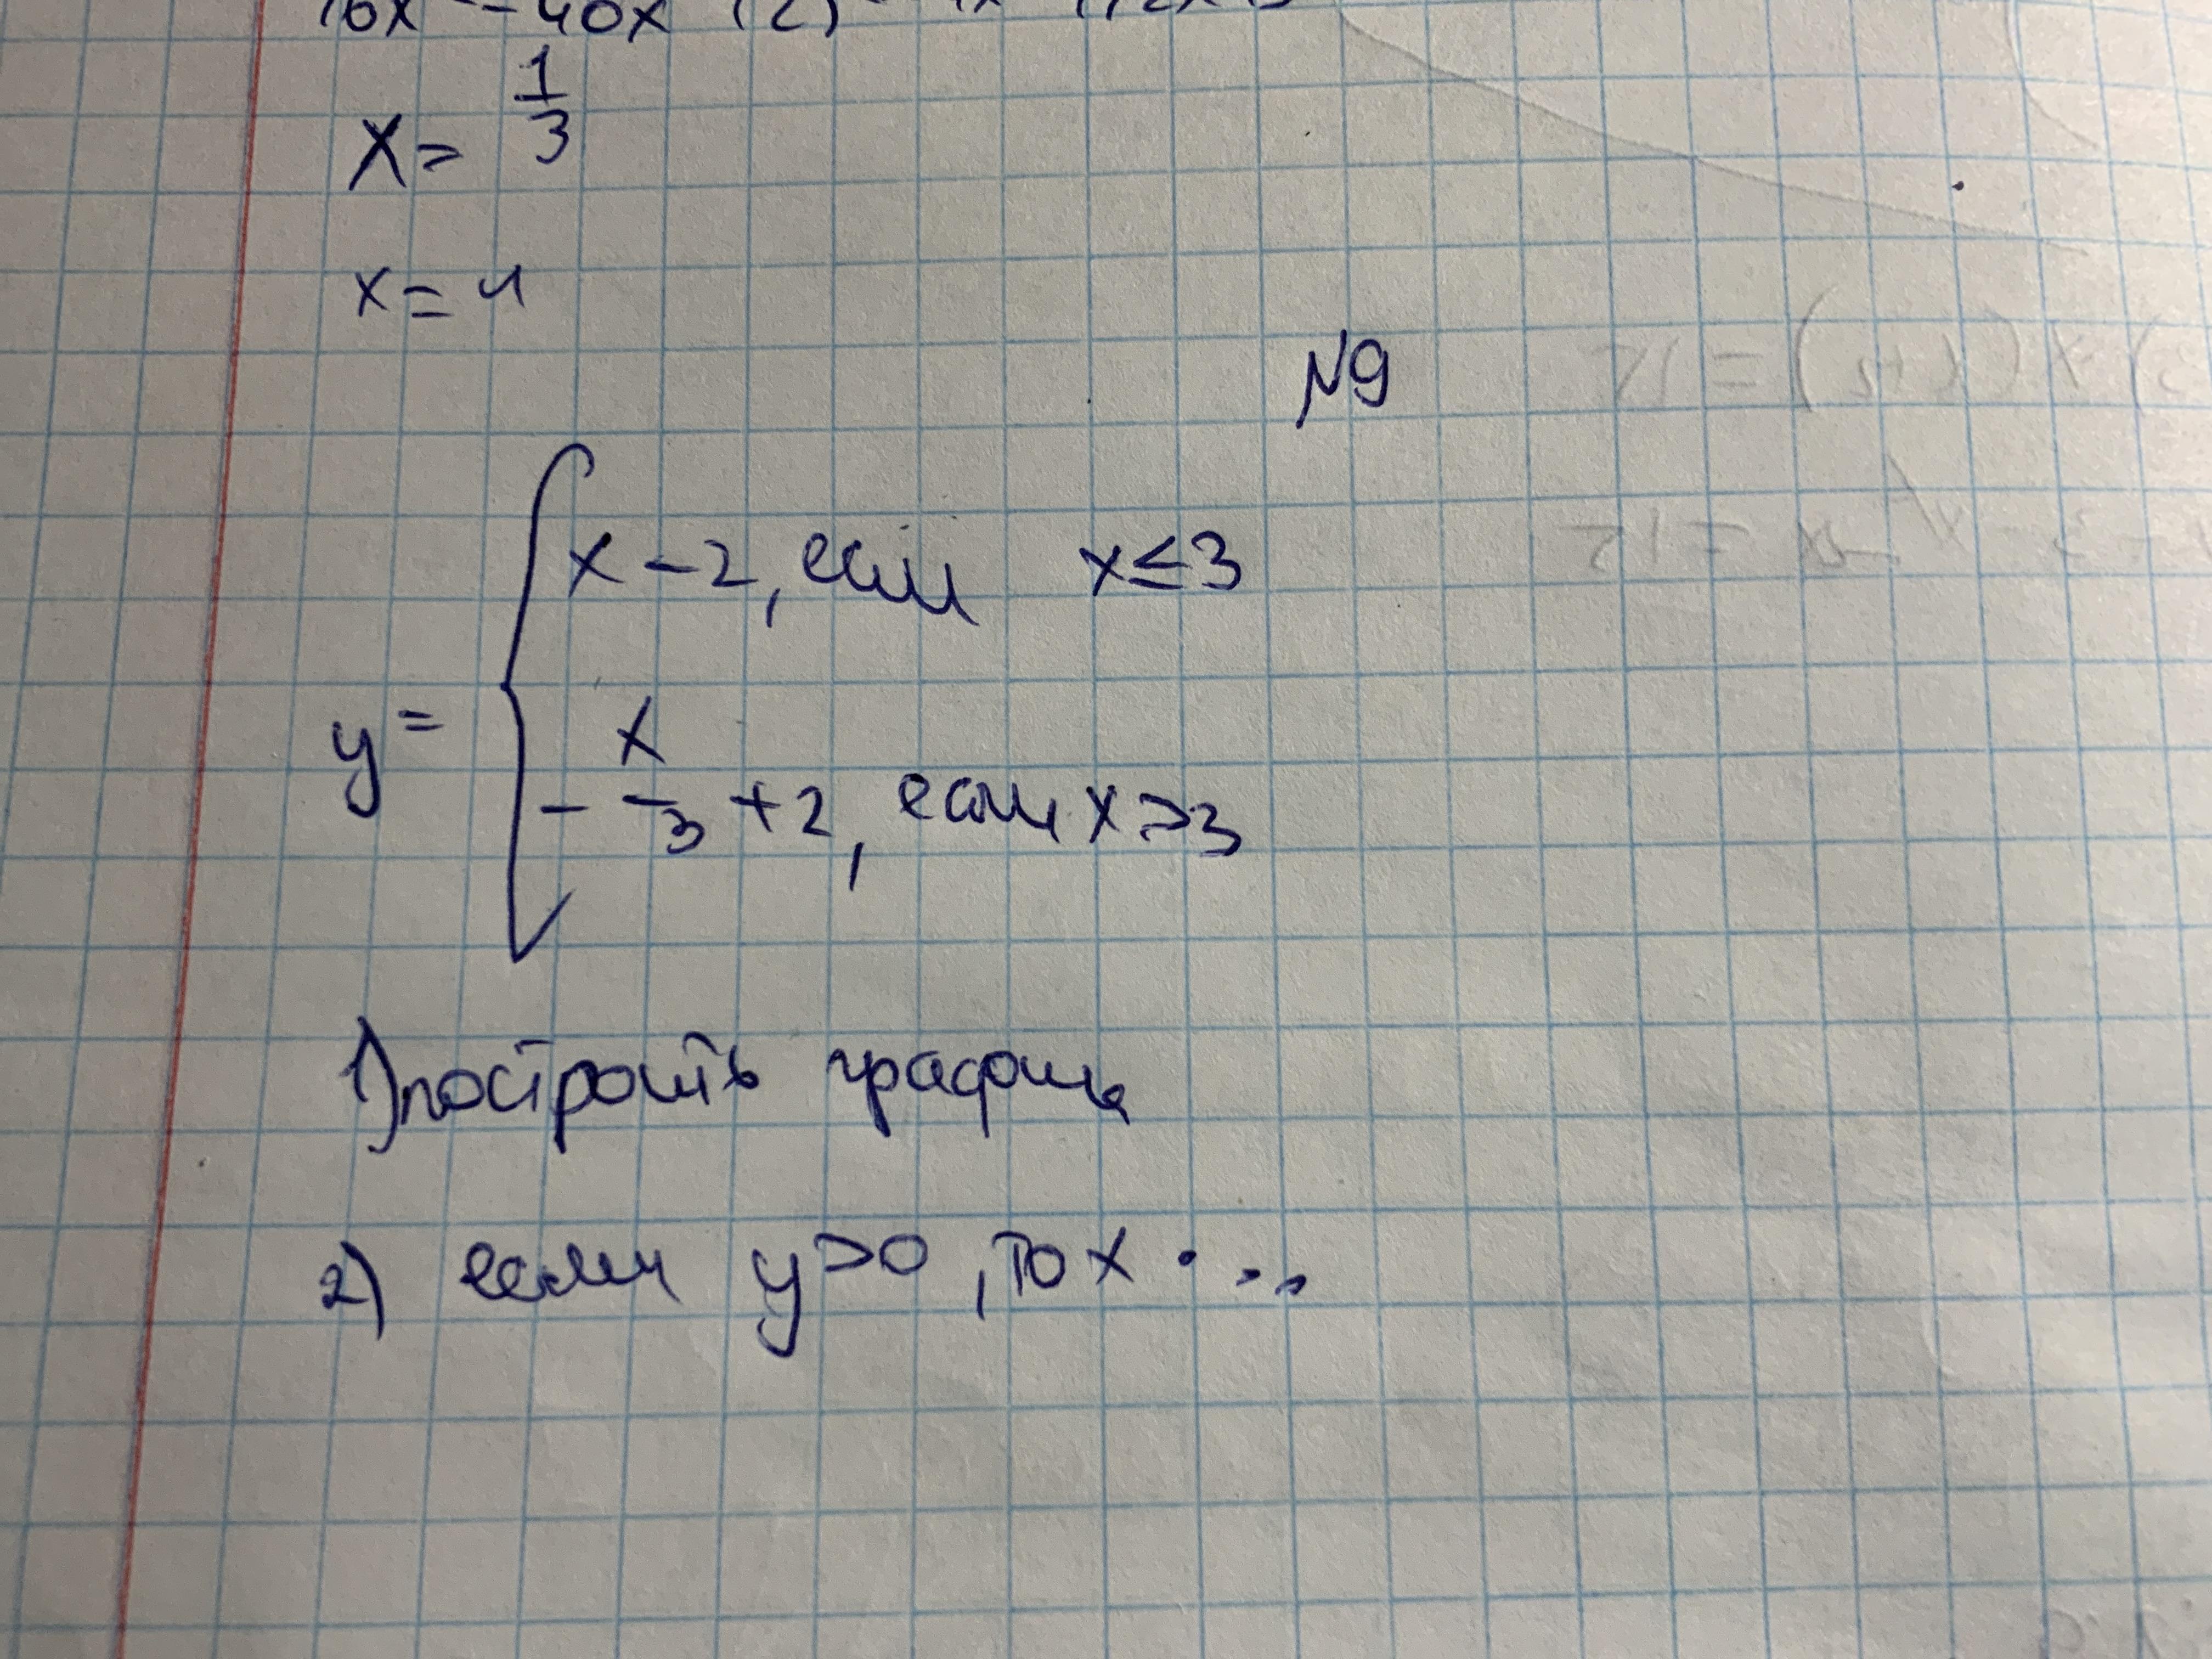 x = 1/3
x = 1
N9
y = { x - 2, если x ≤ 3
- x/3 + 2, если x > 3
1) построить график
2) если y > 0, то x ...